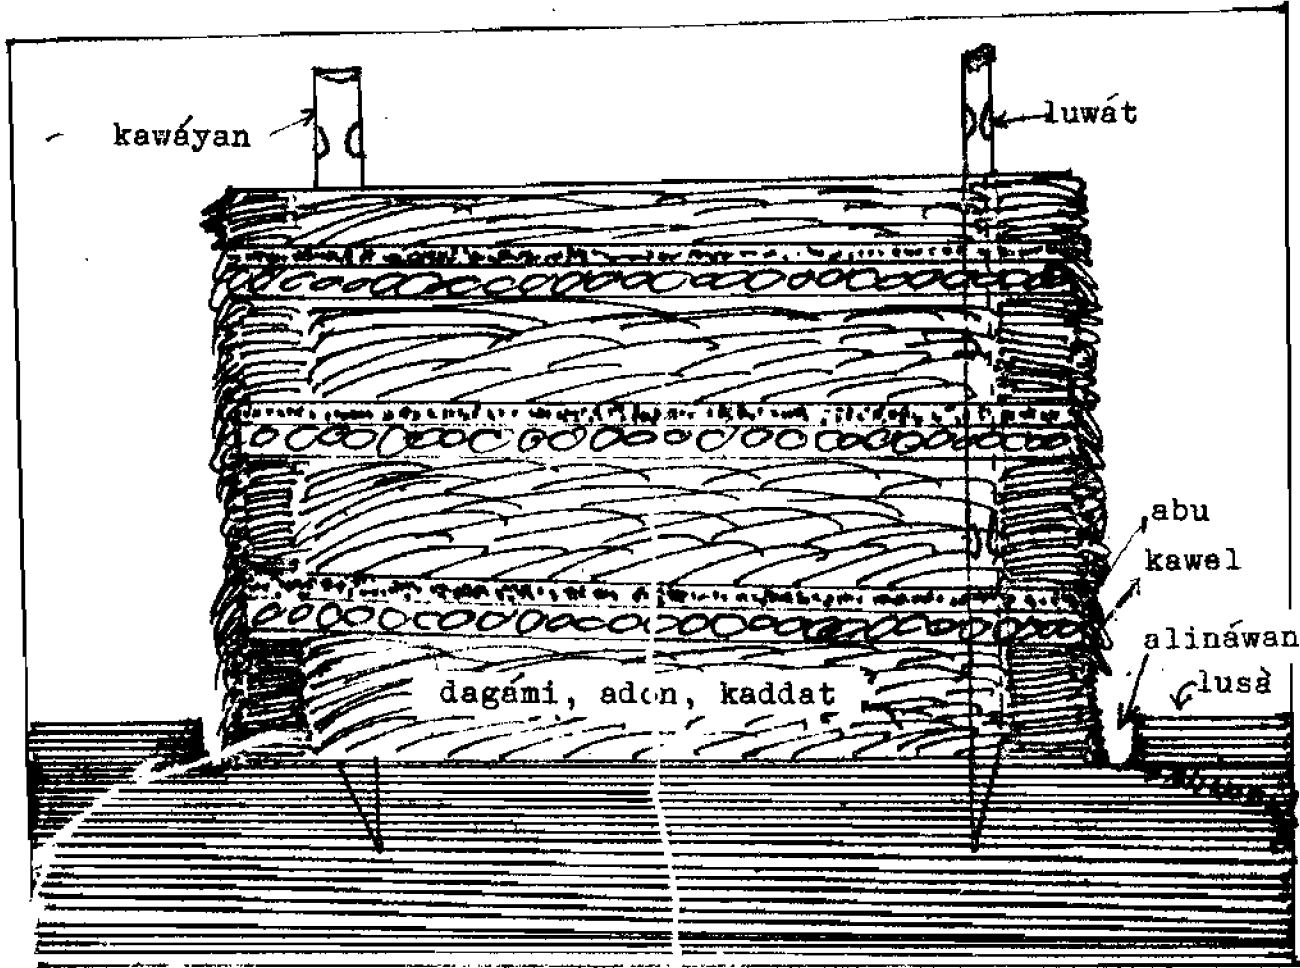 kawáyan
luwát
abu
kawel
alináwan
lusà
dagámi, adon, kaddat